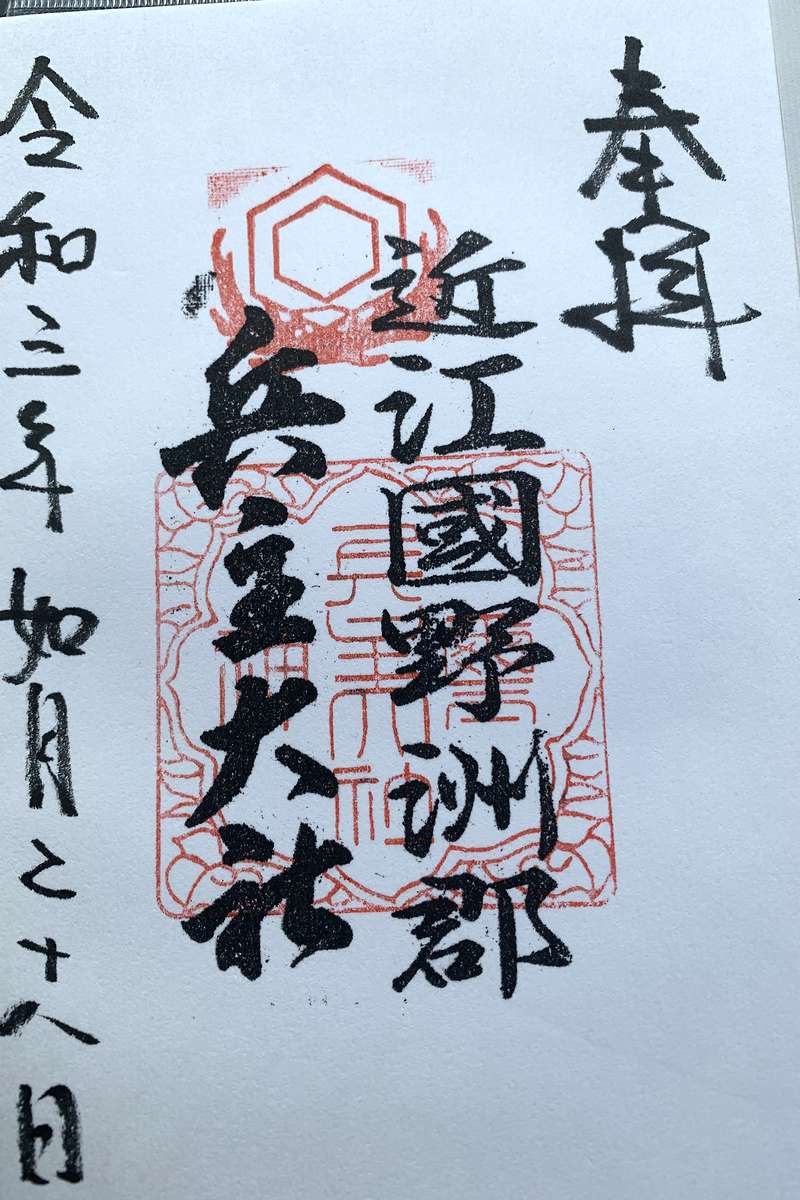 奉拝
近江國野洲郡
兵主大社
令和三年如月二十八日